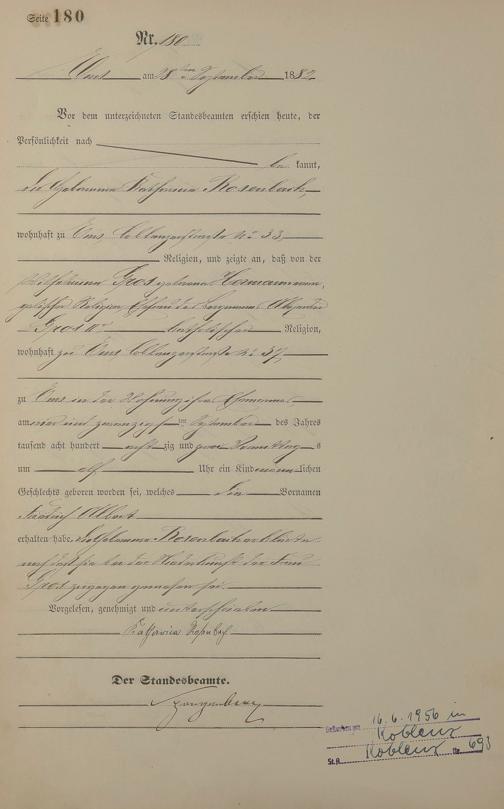 Seite 180
Nr. 180
Ems am 28ten September 1882
Vor dem unterzeichneten Standesbeamten erschien heute, der
Persönlichkeit nach
be kannt,
die Hebamme Katharina Rosenbach,
wohnhaft zu Ems Coblenzerstraße No 33,
Religion, und zeigte an, daß von der
Wilhelmine Gros geborene
Religion, Ehefrau des Bergmanns
Gros katholischer Religion,
wohnhaft zu Ems Coblenzerstraße No 37,
zu Ems in der Wohnung ihres Ehemannes
am vier und zwanzigsten September des Jahres
tausend acht hundert acht zig und zwei Vormittag s
um elf Uhr ein Kind männlichen
Geschlechts geboren worden sei, welches die Vornamen
Friedrich Albert
erhalten habe. Die Hebamme Rosenbach erklärte
daß sie bei der Niederkunft der Frau
Gros zugegen gewesen sei.
Vorgelesen, genehmigt und unterschrieben
Katharina Rosenbach
Der Standesbeamte.
16.6.1956 in
Koblenz
St.A. Koblenz Nr. 693